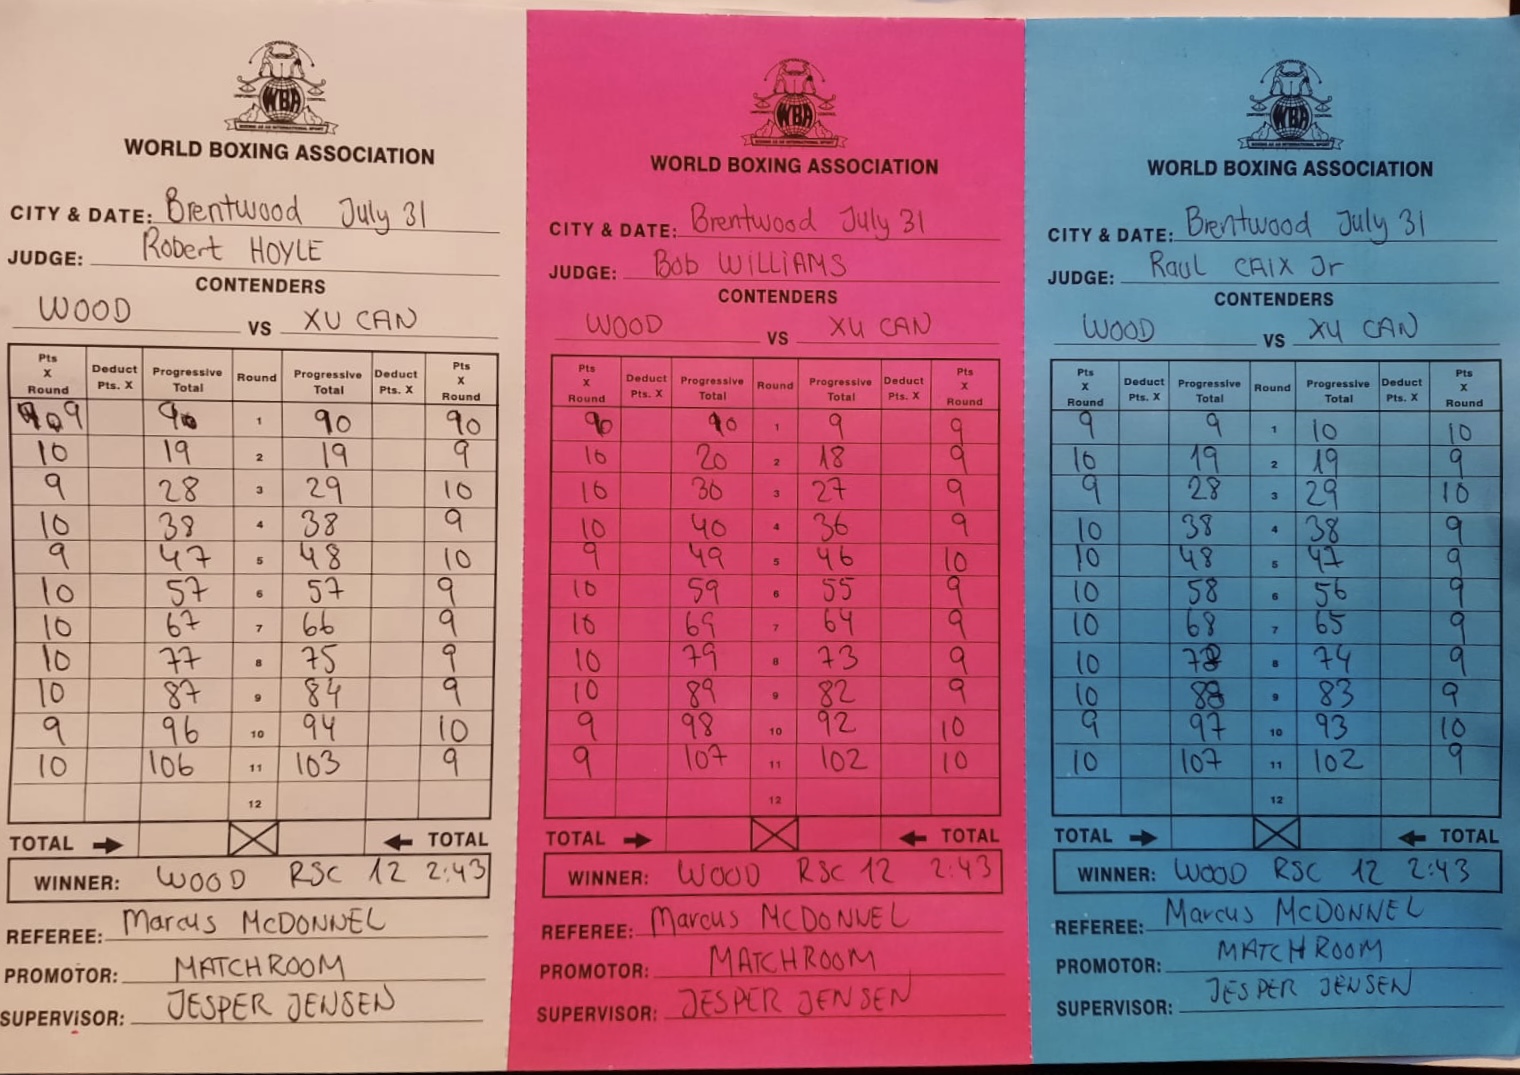 WBA
WORLD BOXING ASSOCIATION
CITY & DATE: Brentwood July 31
JUDGE: Robert HOYLE
CONTENDERS
WOOD VS XU CAN
Pts X Round Deduct Pts. X Progressive Total Round Progressive Total Deduct Pts. X Pts X Round
9 1 90 90
10 19 2 19 9
9 28 3 29 10
10 38 4 38 9
9 47 5 48 10
10 57 6 57 9
10 67 7 66 9
10 77 8 75 9
10 87 9 84 9
9 96 10 94 10
10 106 11 103 9
12
TOTAL TOTAL
WINNER: WOOD RSC 12 2:43
REFEREE: Marcus McDONNEL
PROMOTOR: MATCHROOM
SUPERVISOR: JESPER JENSEN
WBA
WORLD BOXING ASSOCIATION
CITY & DATE: Brentwood July 31
JUDGE: Bob WILLIAMS
CONTENDERS
WOOD VS XU CAN
Pts X Round Deduct Pts. X Progressive Total Round Progressive Total Deduct Pts. X Pts X Round
10 1 9 9
10 20 2 18 9
10 30 3 27 9
10 40 4 36 9
9 49 5 46 10
10 59 6 55 9
10 69 7 64 9
10 79 8 73 9
10 89 9 82 9
9 98 10 92 10
9 107 11 102 10
12
TOTAL TOTAL
WINNER: WOOD RSC 12 2:43
REFEREE: Marcus McDONNEL
PROMOTOR: MATCHROOM
SUPERVISOR: JESPER JENSEN
WBA
WORLD BOXING ASSOCIATION
CITY & DATE: Brentwood July 31
JUDGE: Raul CAIX Jr
CONTENDERS
WOOD VS XU CAN
Pts X Round Deduct Pts. X Progressive Total Round Progressive Total Deduct Pts. X Pts X Round
9 9 1 10 10
10 19 2 19 9
9 28 3 29 10
10 38 4 38 9
10 48 5 47 9
10 58 6 56 9
10 68 7 65 9
10 78 8 74 9
10 88 9 83 9
9 97 10 93 10
10 107 11 102 9
12
TOTAL TOTAL
WINNER: WOOD RSC 12 2:43
REFEREE: Marcus McDONNEL
PROMOTOR: MATCHROOM
SUPERVISOR: JESPER JENSEN